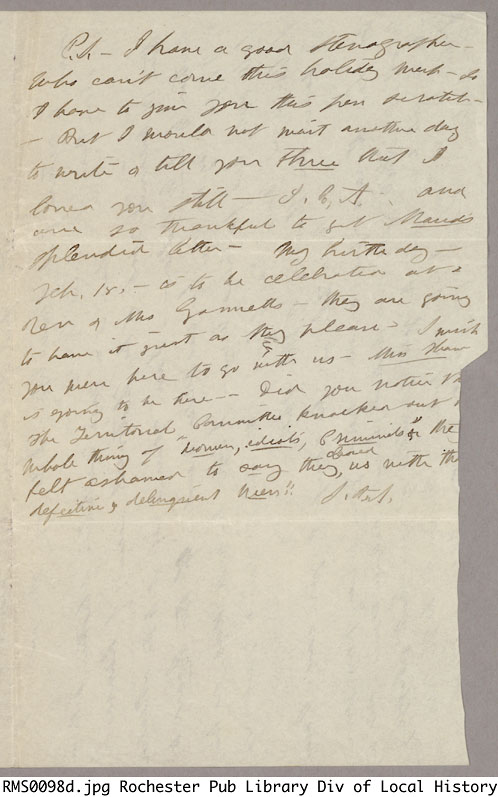 P.S. — I have a good stenographer —
who can't come this holiday week — so
I have to give you this pen scratch —
— But I would not wait another day
to write & tell you three that I
loved you still — I. C. A. and
am so thankful to get Maud's
splendid letter — My birthday —
Feb. 15. — is to be celebrated at
Rev & Mrs Gannetts — they are going
to have it just as they please — I wish
you were here to go with us — Miss Shaw
is going to be here — Did you notice
the Territorial Committee knocked out
whole thing of "women, idiots, Criminals" & they
felt ashamed to say they classed us with the
defective & delinquent Men"! S. B. A.
RMS0098d.jpg Rochester Pub Library Div of Local History